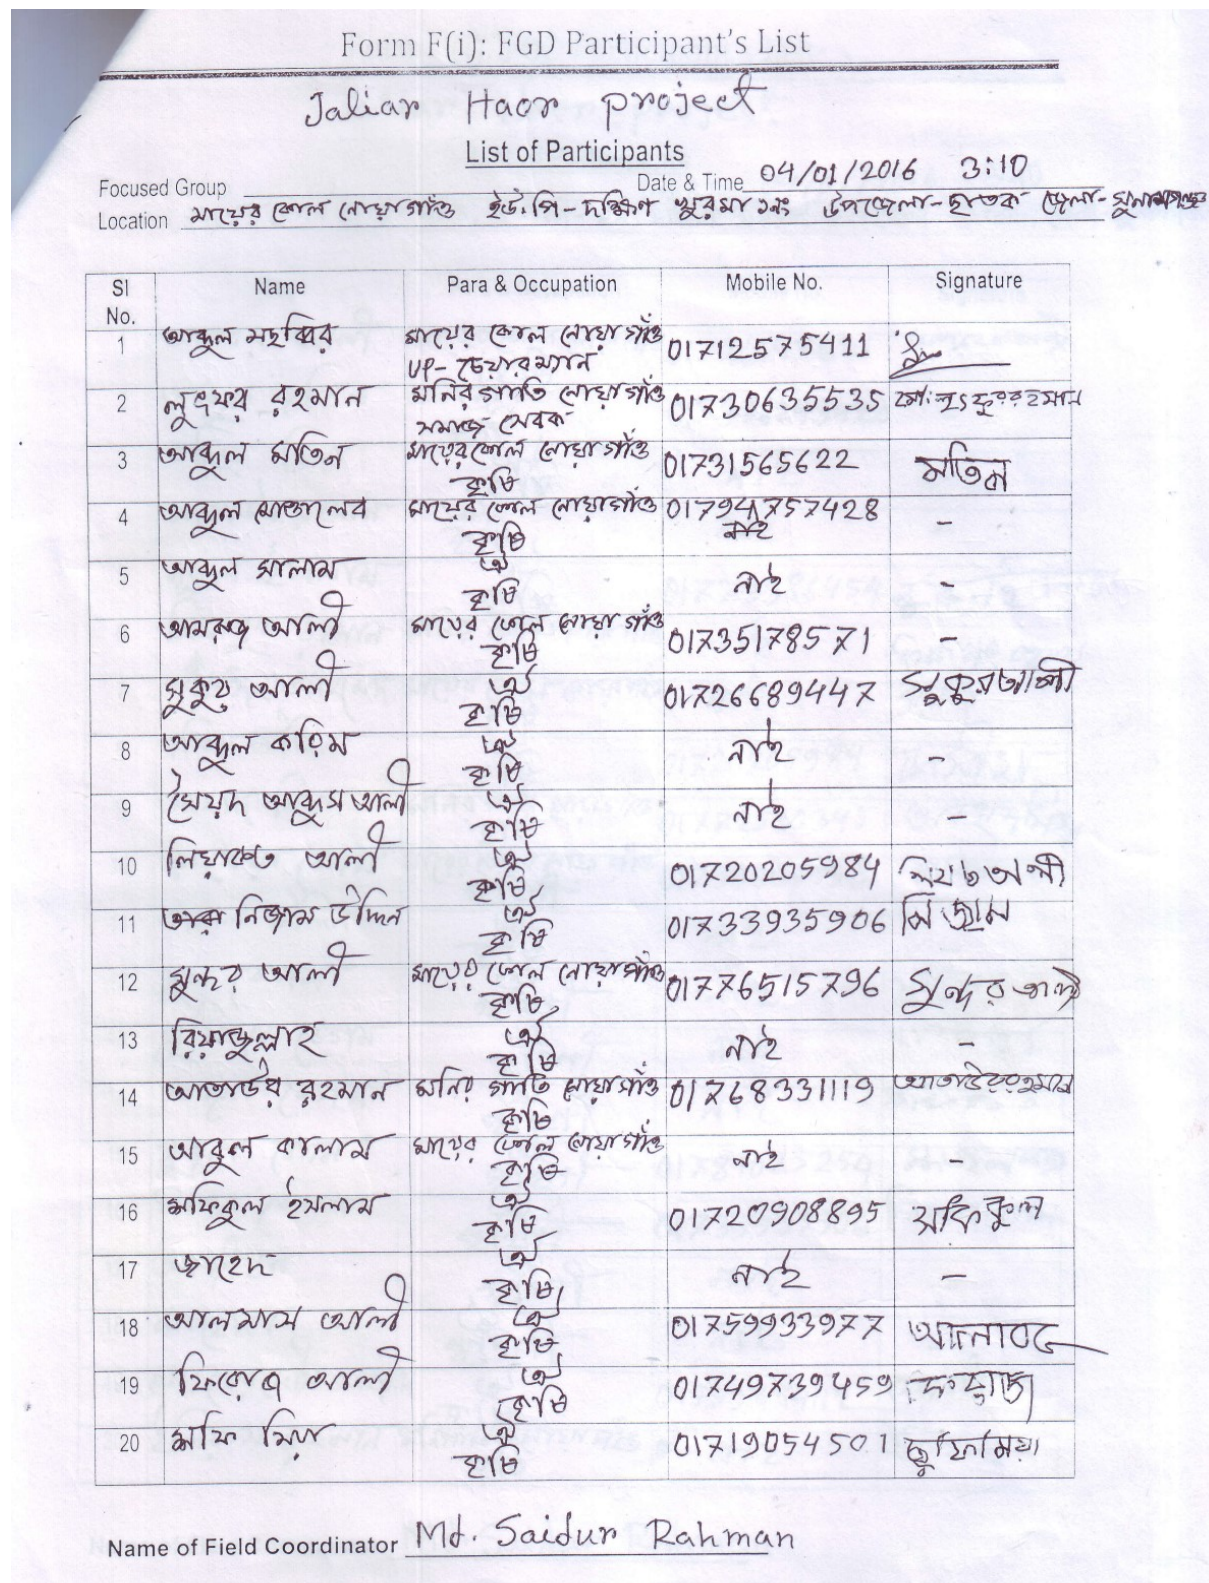 Form F(i): FGD Participant's List
Jaliar Haor project
List of Participants
Focused Group Date & Time 04/01/2016 3:10
Location মায়ের কোল নোয়াগাঁও ইউ.পি-দক্ষিণ খুরমা ১নং উপজেলা-ছাতক জেলা-সুনামগঞ্জ
Sl No. Name Para & Occupation Mobile No. Signature
1 আব্দুল মছব্বির মায়ের কোল নোয়াগাঁও 01712575411
UP-চেয়ারম্যান
2 লুৎফর রহমান মনির গাতি নোয়াগাঁও 01730635535 মো: লুৎফুর রহমান
সমাজ সেবক
3 আব্দুল মতিন মায়ের কোল নোয়াগাঁও 01731565622 মতিন
কৃষি
4 আব্দুল মোত্তালেব মায়ের কোল নোয়াগাঁও 01794757428 -
কৃষি নাই
5 আব্দুল সালাম ঐ নাই -
কৃষি
6 আমরুজ আলী মায়ের কোল নোয়াগাঁও 01735178571 -
কৃষি
7 সুকুর আলী ঐ 01726689447 সুকুর আলী
কৃষি
8 আব্দুল করিম ঐ নাই -
কৃষি
9 সৈয়দ আব্দুস আলী ঐ নাই -
কৃষি
10 লিয়াকত আলী ঐ 01720205984 আলী
কৃষি
11 নিজাম উদ্দিন ঐ 01733935906 নিজাম
কৃষি
12 সুন্দর আলী মায়ের কোল নোয়াগাঁও 01776515796 সুন্দর আলী
কৃষি
13 রিয়াজুল্লাহ ঐ নাই -
কৃষি
14 আতাউর রহমান মনির গাতি নোয়াগাঁও 01768331119 আতাউর রহমান
কৃষি
15 আবুল কালাম মায়ের কোল নোয়াগাঁও নাই -
কৃষি
16 সফিকুল ইসলাম ঐ 01720908895 সফিকুল
কৃষি
17 জাহেদ ঐ নাই -
কৃষি
18 আলমাস আলী ঐ 01759933977
কৃষি
19 ফিরোজ আলী ঐ 01749739459
কৃষি
20 সফি মিয়া ঐ 01719054501 ছুফি মিয়া
কৃষি
Name of Field Coordinator Md. Saidur Rahman